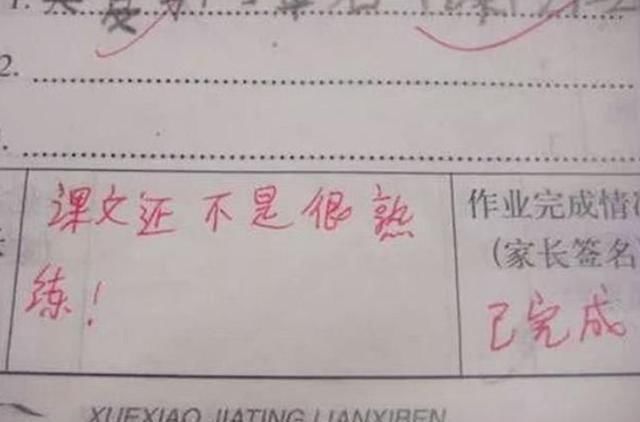 1.
2.
课文还不是很熟
练！
作业完成情
(家长签名
已完成
XUEXIAO JIATING LIANXIBEN